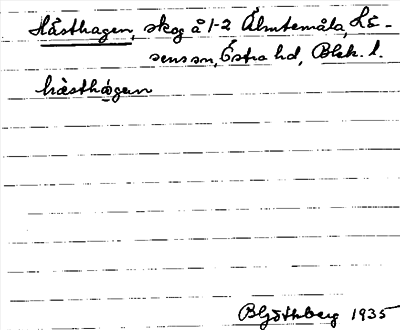 Hästhagen, skog å 1-2 Älmtemåla, Lö-
sens sn, Östra hd, Blek. l.
hästhagen
B Göthberg 1935